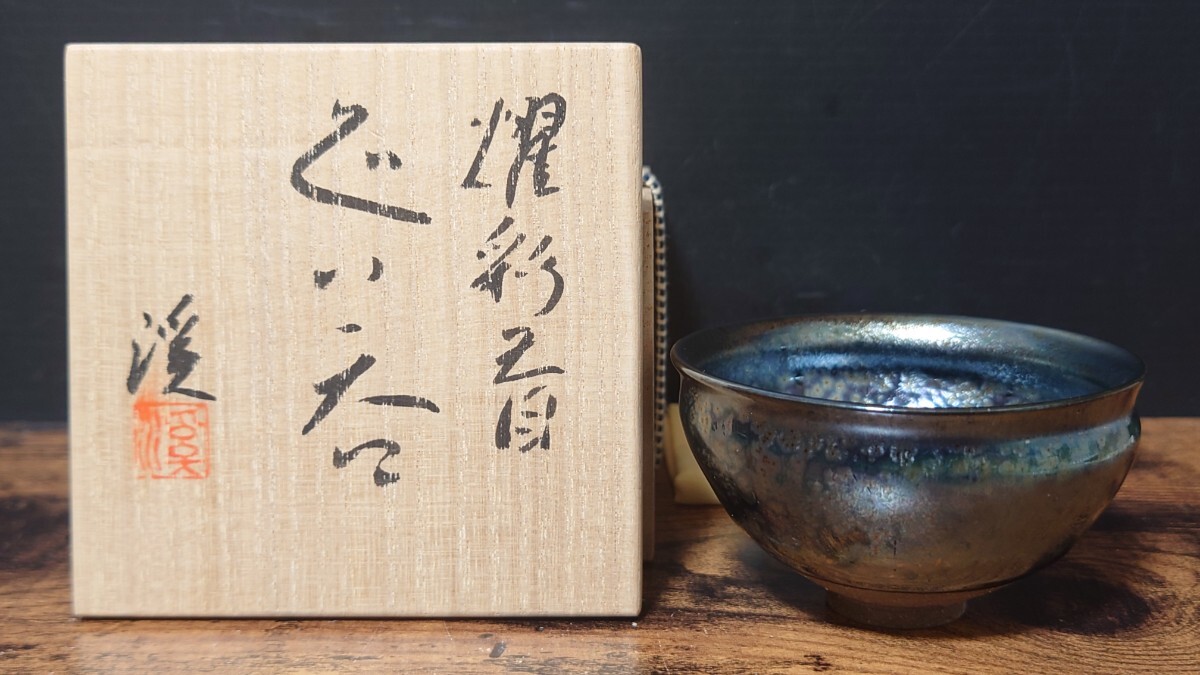 燿彩天目
ぐい呑
渓